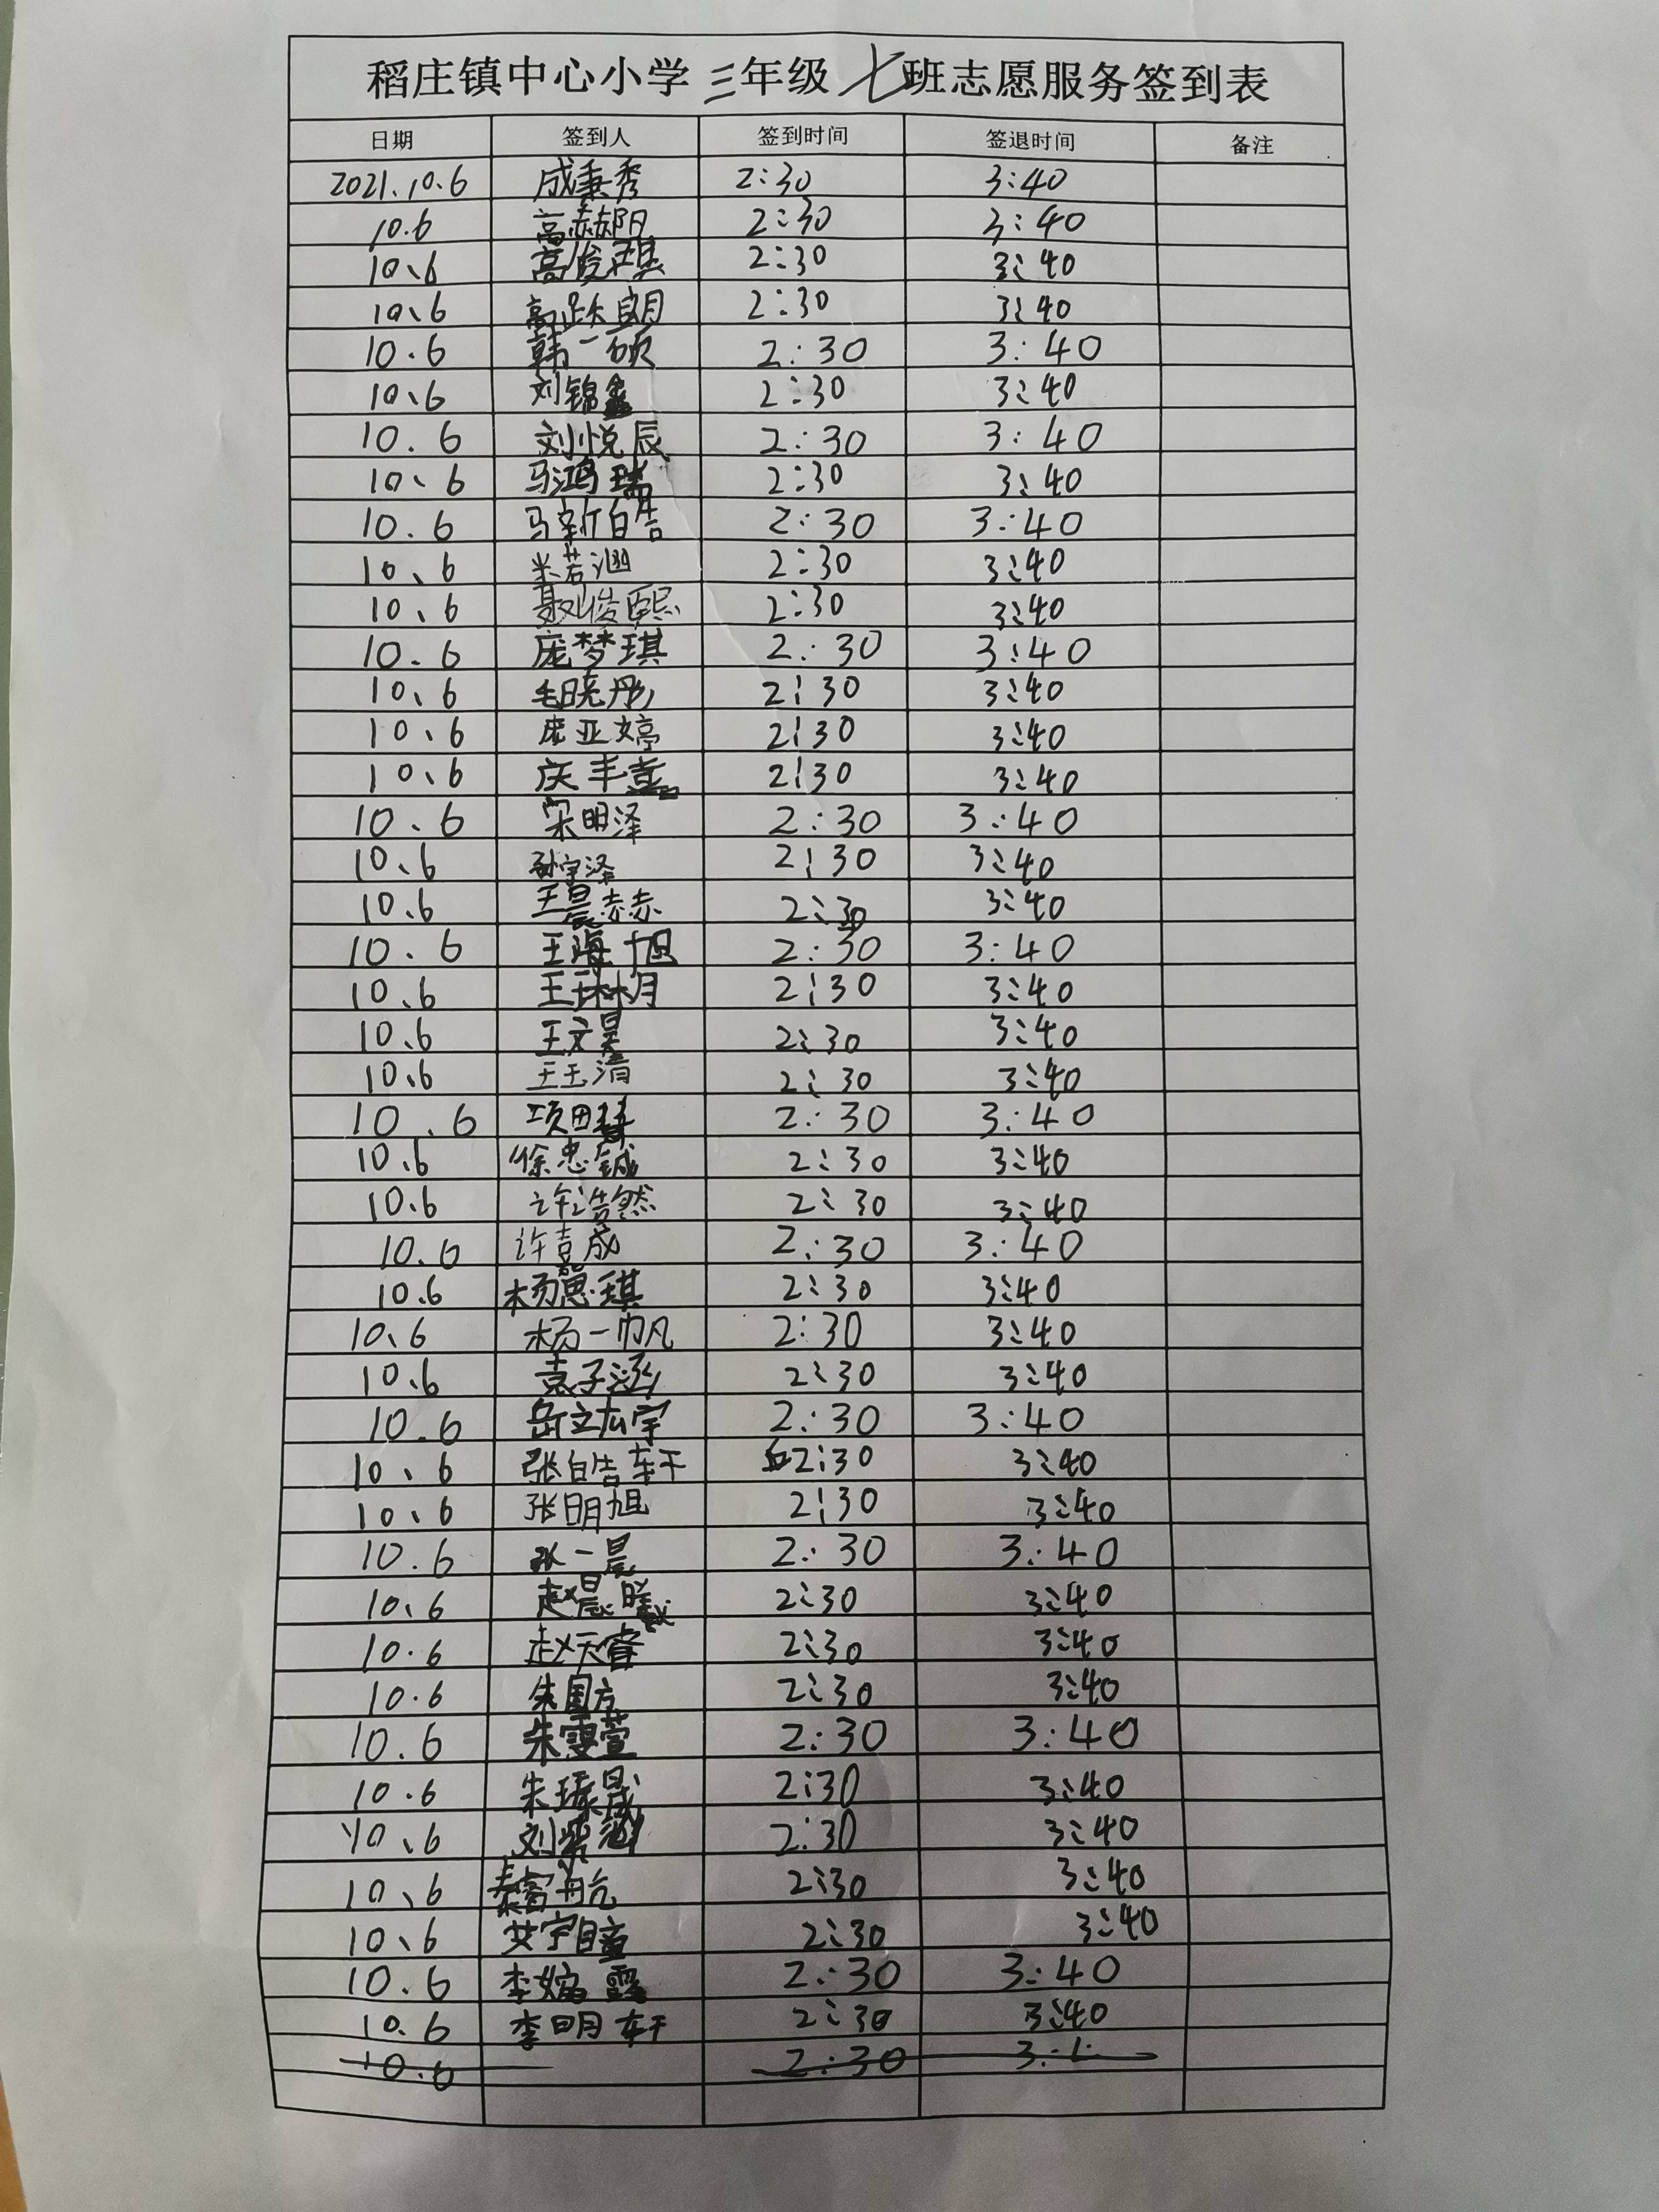 稻庄镇中心小学三年级七班志愿服务签到表
日期 签到人 签到时间 签退时间 备注
2021.10.6 成秉秀 2:30 3:40
10.6 高赫阳 2:30 3:40
10、6 高俊琪 2:30 3:40
10、6 高跃朗 2:30 3:40
10.6 韩一硕 2:30 3:40
10、6 刘锦鑫 2:30 3:40
10.6 刘悦辰 2:30 3:40
10、6 马鸿瑞 2:30 3:40
10.6 马新皓 2:30 3:40
10、6 米若涵 2:30 3:40
10、6 聂俊熙 2:30 3:40
10.6 庞梦琪 2:30 3:40
10、6 毛晓彤 2:30 3:40
10、6 庞亚婷 2:30 3:40
10、6 庆丰 2:30 3:40
10.6 宋明泽 2:30 3:40
10、6 孙宇泽 2:30 3:40
10.6 王晨赫 2:30 3:40
10.6 王海旭 2:30 3:40
10、6 王琳月 2:30 3:40
10.6 王文昊 2:30 3:40
10、6 王玉清 2:30 3:40
10.6 项田 2:30 3:40
10、6 徐忠诚 2:30 3:40
10.6 许浩然 2:30 3:40
10.6 许嘉成 2:30 3:40
10.6 杨思琪 2:30 3:40
10、6 杨一帆 2:30 3:40
10.6 袁子涵 2:30 3:40
10.6 岳立宏宇 2:30 3:40
10、6 张皓轩 2:30 3:40
10、6 张明旭 2:30 3:40
10.6 张一晨 2:30 3:40
10、6 赵晨曦 2:30 3:40
10.6 赵天睿 2:30 3:40
10.6 朱国方 2:30 3:40
10.6 朱雯萱 2:30 3:40
10.6 朱晟 2:30 3:40
10、6 刘紫涵 2:30 3:40
10、6 秦富航 2:30 3:40
10、6 艾宇瞳 2:30 3:40
10.6 李 2:30 3:40
10.6 李明轩 2:30 3:40
10.6 2:30